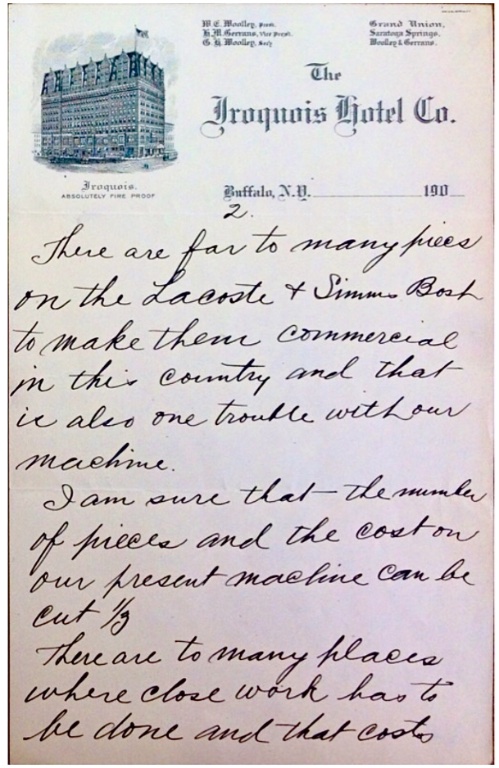 W. E. Woolley, Prest.
H. M. Gerrans, Vice Prest.
G. H. Woolley, Secy
Grand Union,
Saratoga Springs,
Woolley & Gerrans.
The
Iroquois Hotel Co.
Iroquois.
ABSOLUTELY FIRE PROOF
Buffalo, N.Y. 190
2.
There are far to many pieces
on the Lacoste & Simms Bosh
to make them commercial
in this country and that
is also one trouble with our
machine.
I am sure that the number
of pieces and the cost on
our present machine can be
cut 1/3
There are to many places
where close work has to
be done and that costs